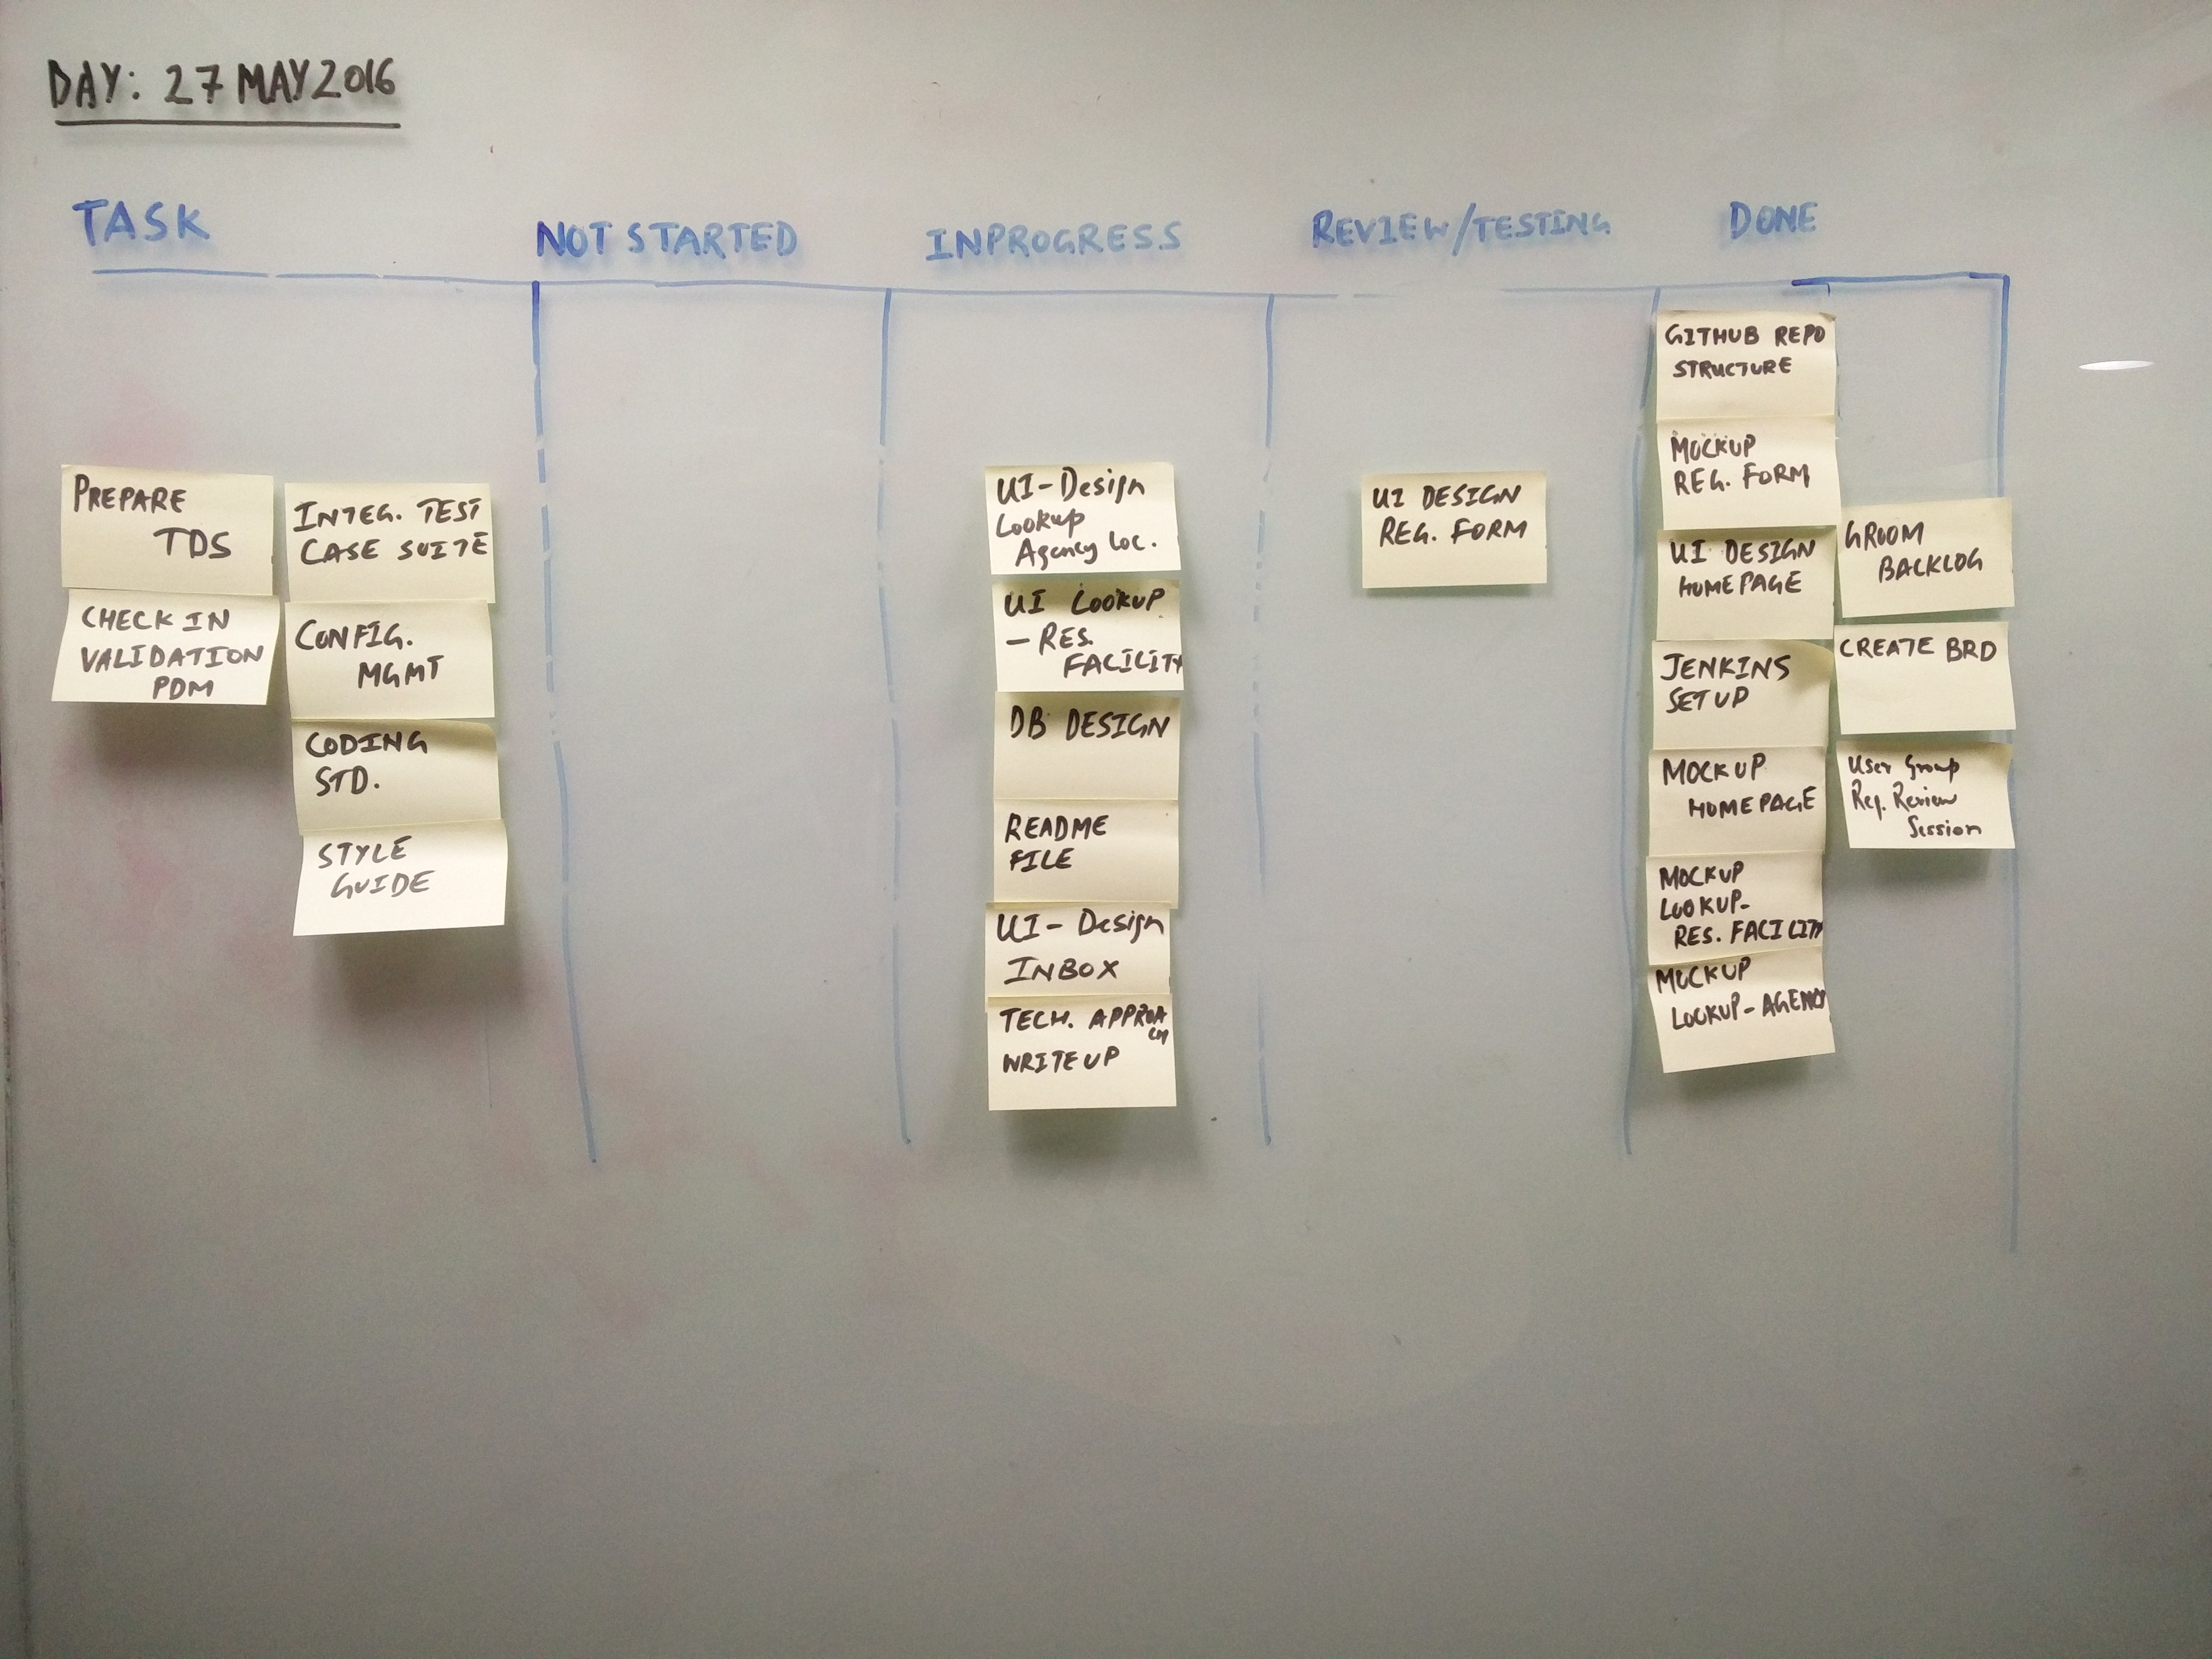 DAY: 27 MAY 2016
TASK
NOT STARTED
INPROGRESS
REVIEW/TESTING
DONE
PREPARE
TDS
CHECK IN
VALIDATION
PDM
INTEG. TEST
CASE SUITE
CONFIG.
MGMT
CODING
STD.
STYLE
GUIDE
UI-Design
Lookup
Agency Loc.
UI LOOKUP
- RES.
FACILITY
DB DESIGN
README
FILE
UI- Design
INBOX
TECH. APPROA
CH
WRITE UP
UI DESIGN
REG. FORM
GITHUB REPO
STRUCTURE
MOCKUP
REG. FORM
UI DESIGN
HOMEPAGE
JENKINS
SETUP
MOCKUP
HOMEPAGE
MOCKUP
LOOKUP-
RES. FACILITY
MOCKUP
LOOKUP-AGENCY
GROOM
BACKLOG
CREATE BRD
User Group
Req. Review
Session